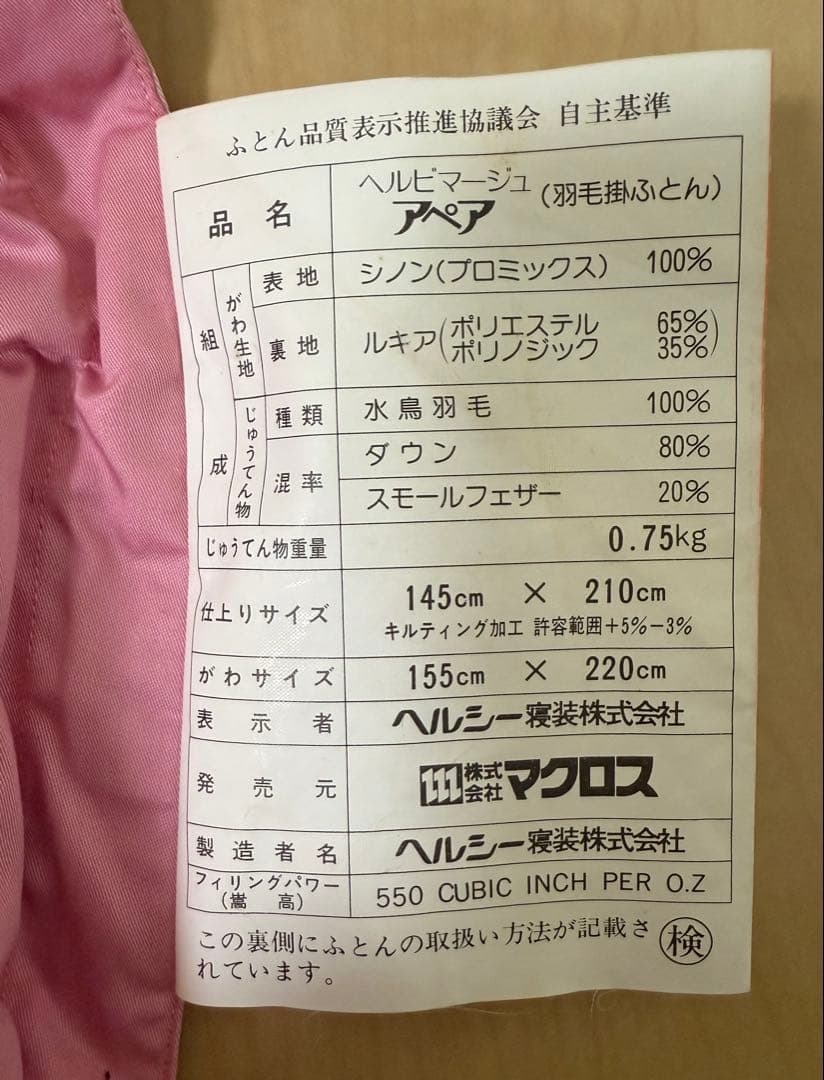 ふとん品質表示推進協議会 自主基準
品名 ヘルビマージュ アペア (羽毛掛ふとん)
組成 がわ生地 表地 シノン(プロミックス) 100%
裏地 ルキア(ポリエステル 65%
ポリノジック 35%)
じゅうてん物 種類 水鳥羽毛 100%
混率 ダウン 80%
スモールフェザー 20%
じゅうてん物重量 0.75kg
仕上りサイズ 145cm × 210cm
キルティング加工 許容範囲+5%-3%
がわサイズ 155cm × 220cm
表示者 ヘルシー寝装株式会社
発売元 株式会社マクロス
製造者名 ヘルシー寝装株式会社
フィリングパワー(嵩高) 550 CUBIC INCH PER O.Z
この裏側にふとんの取扱い方法が記載さ
れています。
検